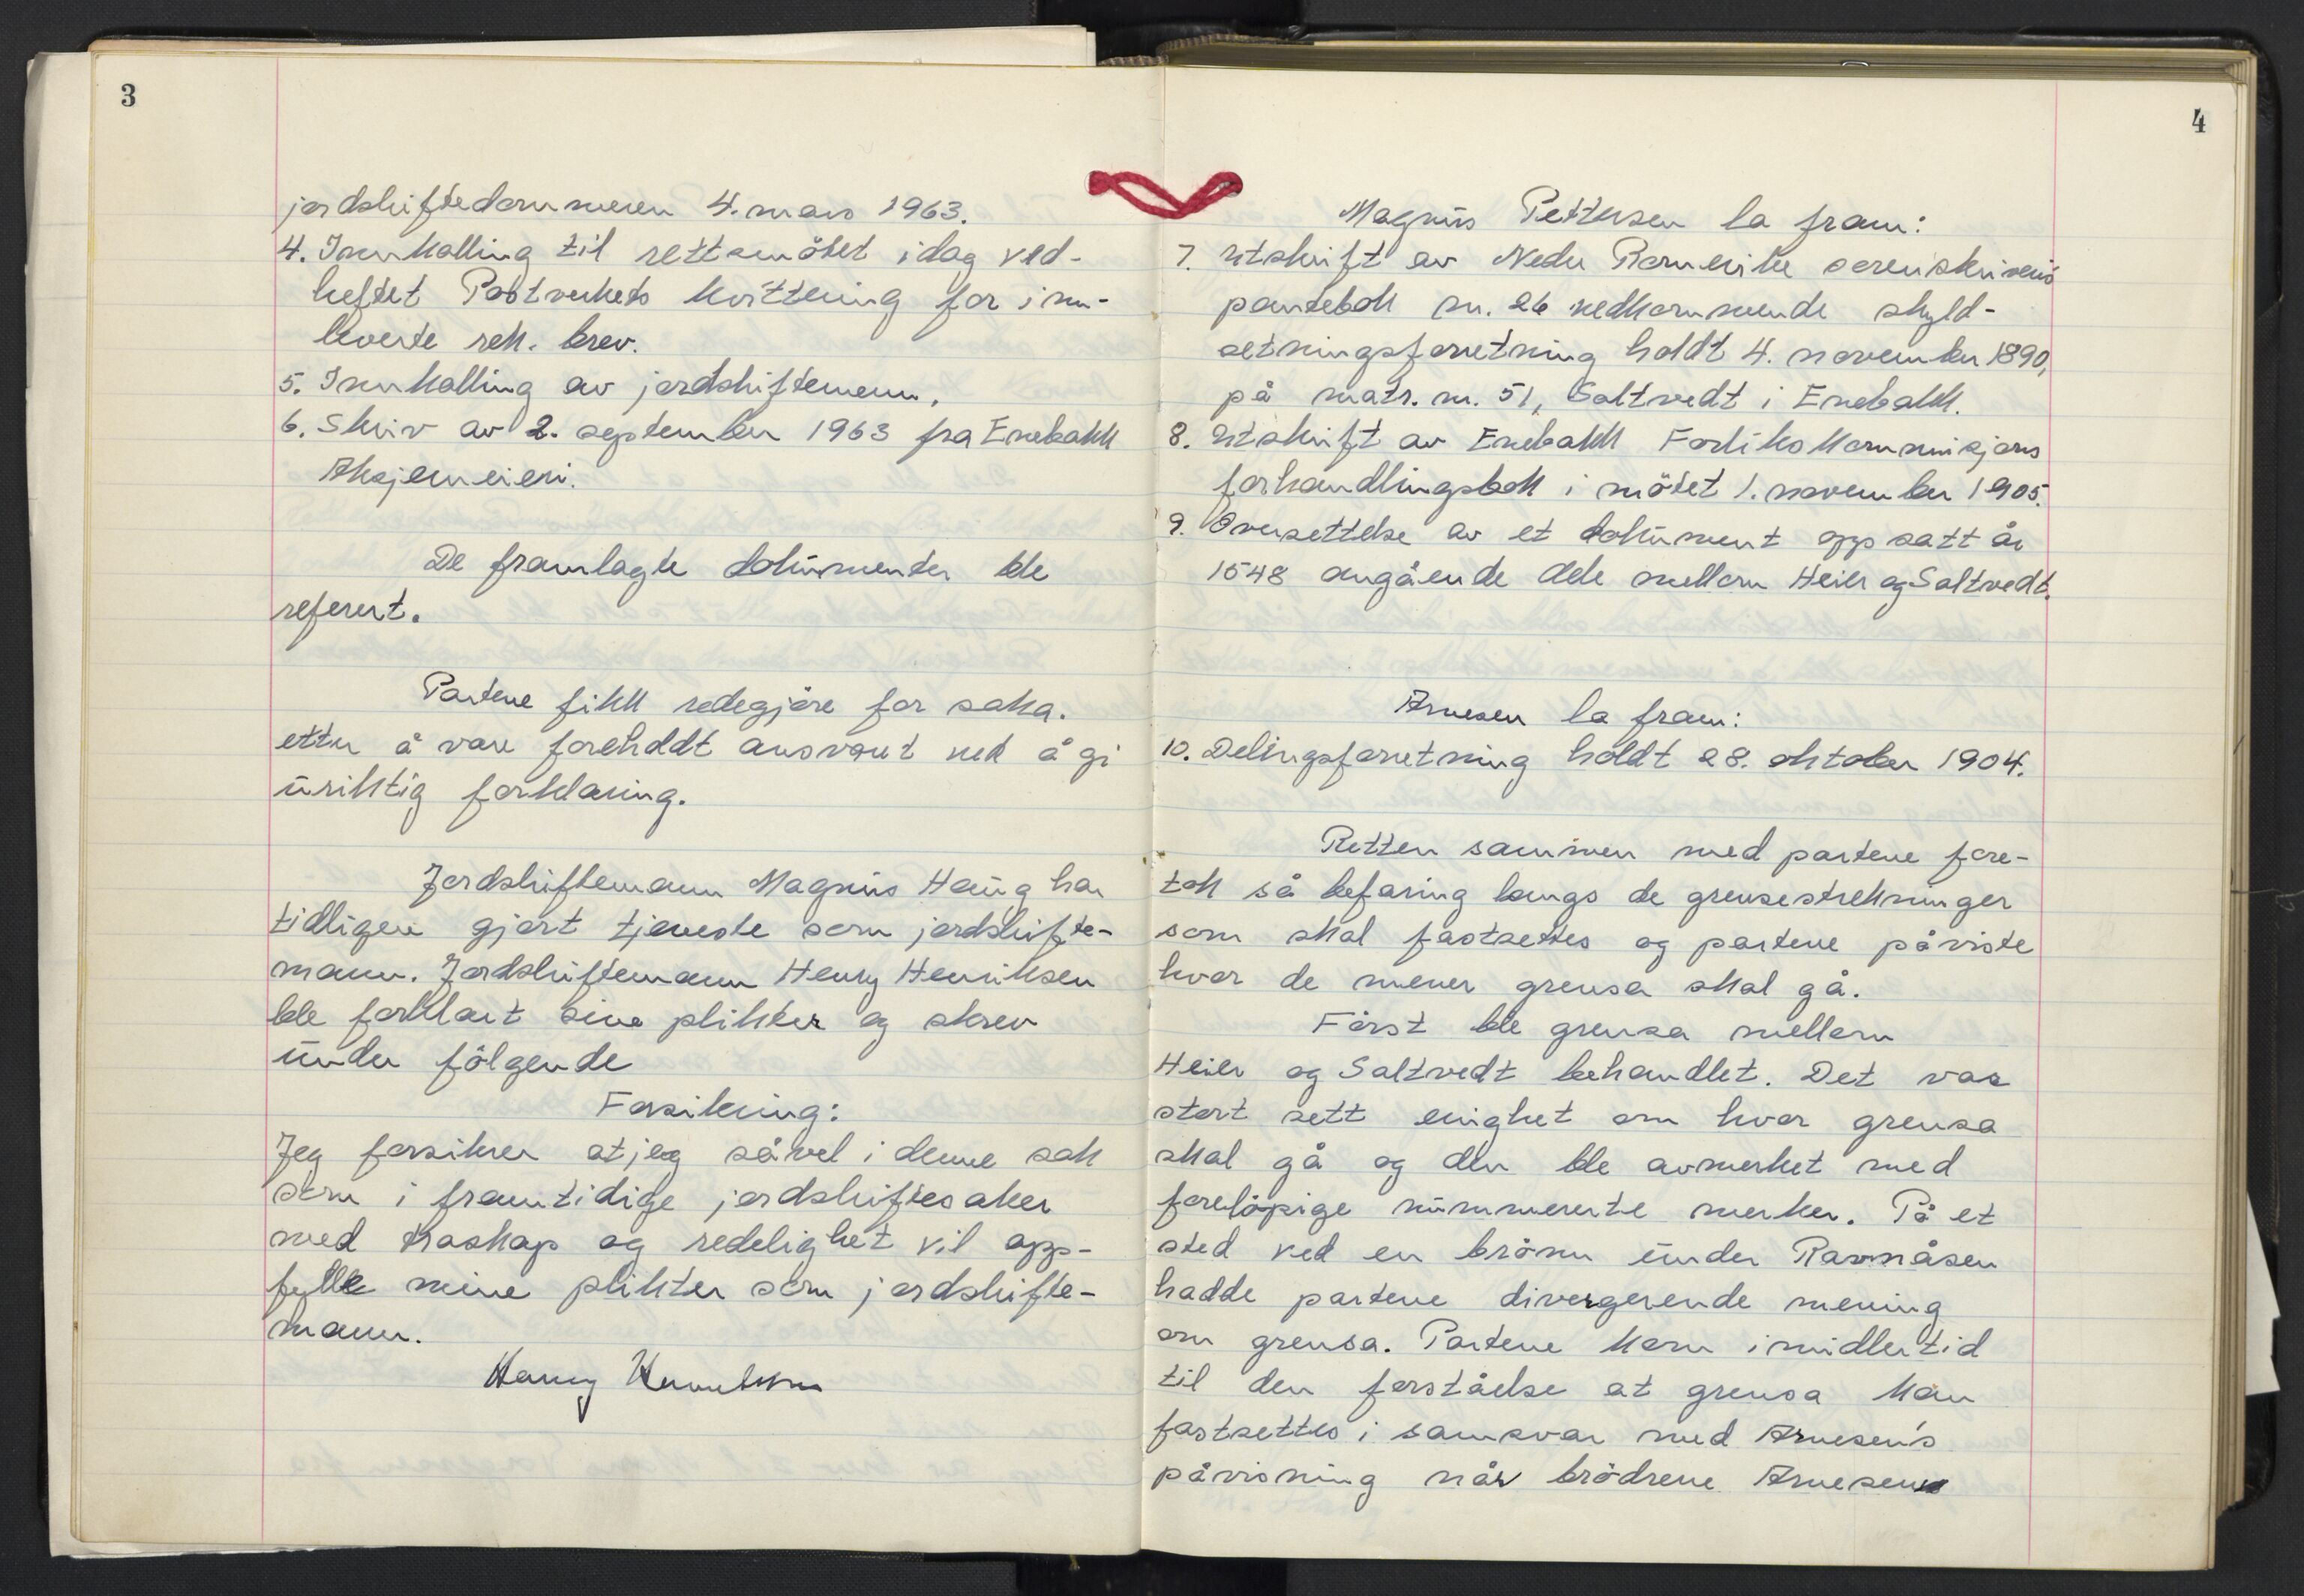 3
jordskiftedommeren 4. mars 1963.
4. Innkalling til rettsmötet idag ved-
heftet Postverkets kvittering for inn-
leverte rek. brev.
5. Innkalling av jordskiftemenn.
6. Skriv av 2. september 1963 fra Enebakk
Aksjemeieri.
De framlagte dokumenter ble
referert.
Partene fikk redegjöre for saka.
etter å være foreholdt ansvaret ved å gi
uriktig forklaring.
Jordskiftemann Magnus Haug har
tidligere gjort tjeneste som jordskifte-
mann. Jordskiftemann Henry Henriksen
ble forklart sine plikter og skrev
under fölgende
Forsikring:
Jeg forsikrer at jeg såvel i denne sak
som i framtidige jordskiftesaker
med troskap og redelighet vil opp-
fylle mine plikter som jordskifte-
mann.
Henry Henriksen
4
Magnus Pettersen la fram:
7. Utskrift av Nedre Romerike sorenskriveris
pantebok nr. 26 vedkommende skyld-
setningsforretning holdt 4. november 1890,
på matr. nr. 51, Saltvedt i Enebakk.
8. Utskrift av Enebakk Forlikskommisjons
forhandlingsbok i mötet 1. november 1905.
9. Oversettelse av et dokument oppsatt år
1548 angående dele mellom Heier og Saltvedt.
Arnesen la fram:
10. Delingsforretning holdt 28. oktober 1904.
Retten sammen med partene fore-
tok så befaring langs de grensestrekninger
som skal fastsettes og partene påviste
hvor de mener grensa skal gå.
Först ble grensa mellom
Heier og Saltvedt behandlet. Det var
stort sett enighet om hvor grensa
skal gå og den ble avmerket med
forelöpige nummererte merker. På et
sted ved en brönn under Ravnåsen
hadde partene divergerende mening
om grensa. Partene kom imidlertid
til den forståelse at grensa kan
fastsettes i samsvar med Arnesen's
påvisning når brödrene Arnesen